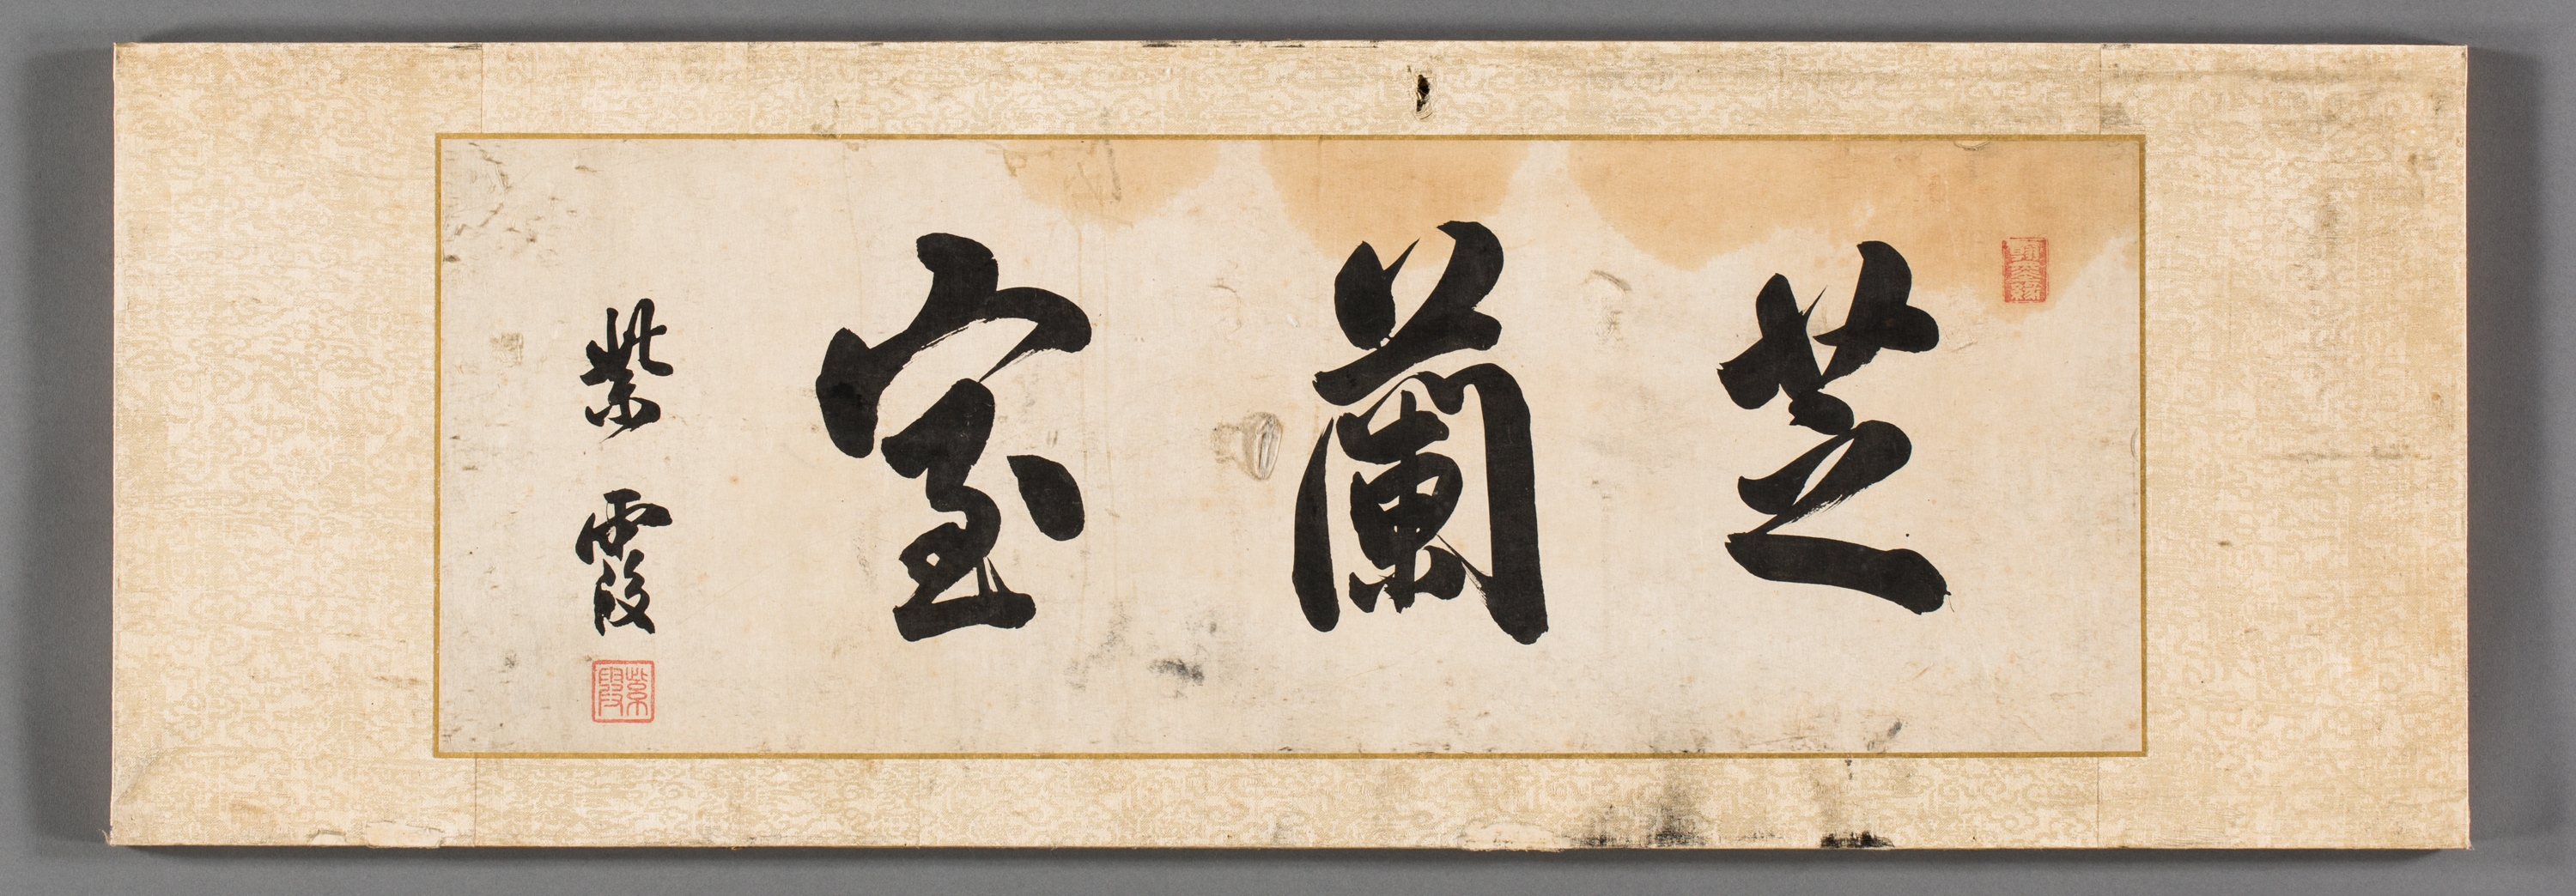 芝蘭室
紫霞
紫霞